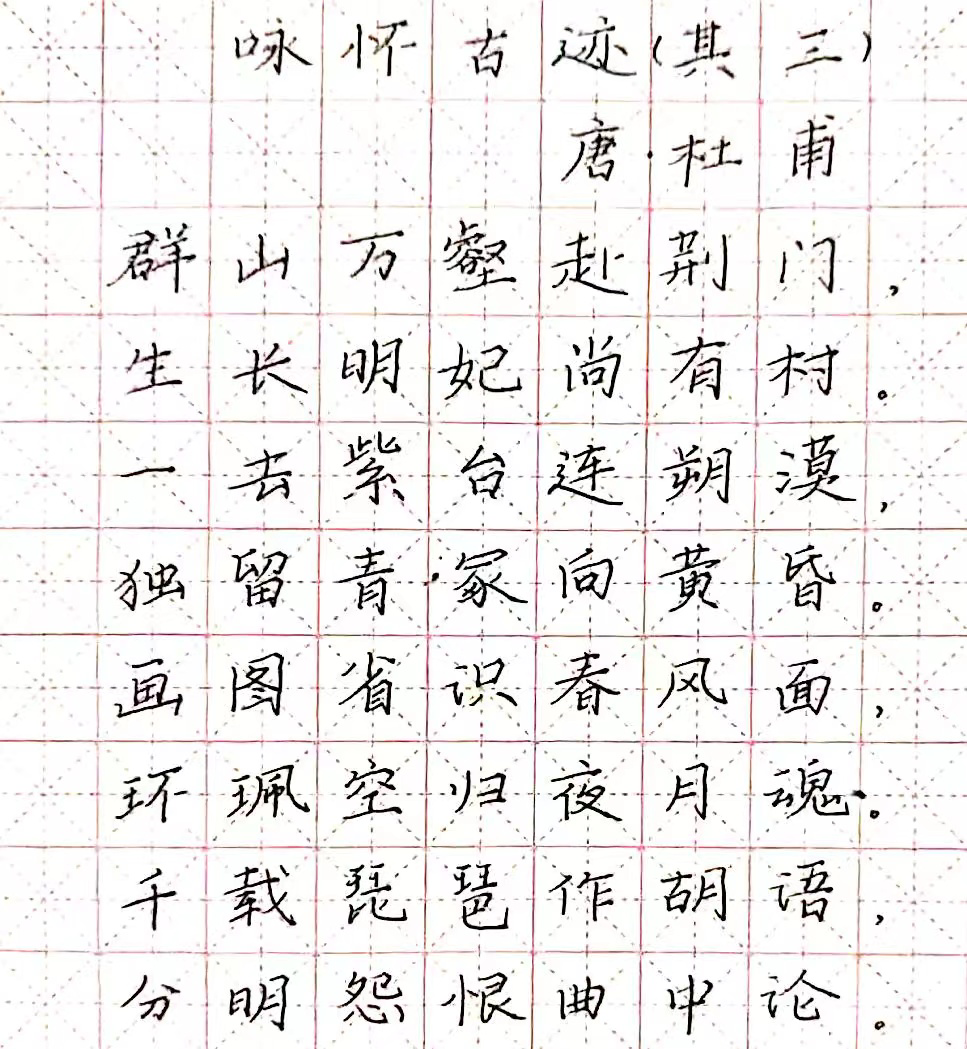 咏怀古迹(其三)
唐·杜甫
群山万壑赴荆门,
生长明妃尚有村。
一去紫台连朔漠,
独留青冢向黄昏。
画图省识春风面,
环珮空归夜月魂。
千载琵琶作胡语,
分明怨恨曲中论。